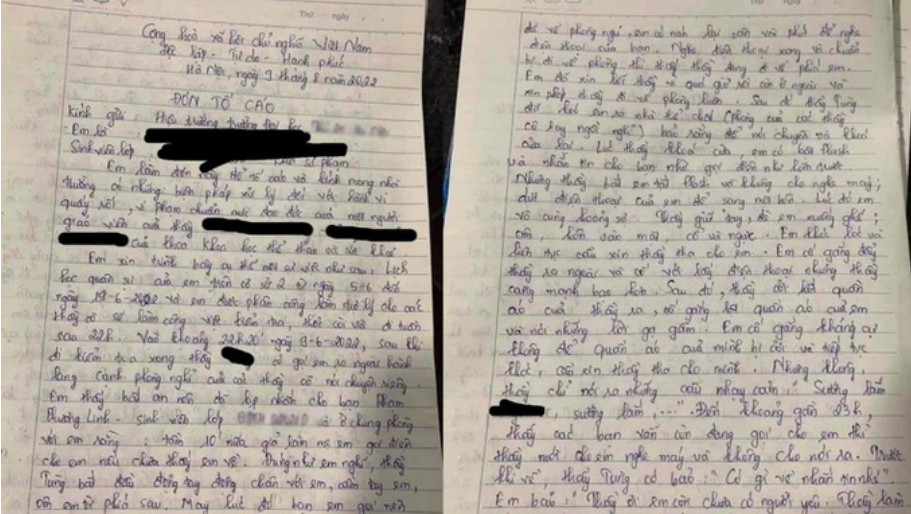 Thứ ngày
Cộng hoà xã hội chủ nghĩa Việt Nam
Độc lập - Tự do - Hạnh phúc
Hà Nội, ngày 9 tháng 8 năm 2022
ĐƠN TỐ CÁO
Kính gửi: Hiệu trưởng trường
Em là
Sinh viên lớp phạm
Em làm đơn này để tố cáo và kính mong nhà
trường có những biện pháp xử lý đối với hành vi
quấy rối, vi phạm chuẩn mực đạo đức của một người
giáo viên của thầy
của khoa Khoa học thể thao và sức khoẻ.
Em xin trình bày cụ thể nội dung sự việc như sau: Lịch
học quân sự của em trên cơ sở 2 từ ngày 5-6 đến
ngày 19-6-2022 và em được phân công làm thư ký cho các
thầy cô sẽ làm công việc kiểm tra, thổi còi và đi tuần
sau 22h. Vào khoảng 22h20' ngày 9-6-2022, sau khi
đi kiểm tra xong thầy có gọi em ra ngoài hành
lang cạnh phòng nghỉ của các thầy cô nói chuyện riêng.
Em thấy bất an nên đã kịp nhắn cho bạn Phạm
Phương Linh - sinh viên lớp ở chung phòng
với em rằng: tầm 10' nữa giả làm mẹ em gọi điện
cho em nếu chưa thấy em về. Đúng như em nghĩ, thầy
Tùng bắt đầu động tay động chân với em, cầm tay em,
ôm em từ phía sau. May lúc đó bạn em gọi nên
để về phòng ngủ, em có nán lại vài phút để nghe
điện thoại của bạn. Nghe điện thoại xong và chuẩn
bị đi về phòng thì thấy thầy đang đi về phía em.
Em đã xin lỗi thầy vì quá giờ rồi còn ở ngoài và
xin phép thầy đi về phòng luôn. Sau đó thầy Tùng
đã kéo em ra nhà thể chất (phòng của các thầy
cô hay ngồi nghỉ) bảo rằng để nói chuyện và khoá
cửa lại. Lúc thầy khoá cửa, em có bật flash
và nhắn tin cho bạn nhờ gọi điện như lần trước.
Nhưng thầy bắt em tắt flash và không cho nghe máy;
dứt điện thoại của em để sang một bên. Lúc đó em
vô cùng hoảng sợ. Thầy giữ tay, đè em xuống ghế;
ôm, hôn vào môi, cổ và ngực. Em khóc lóc và
liên tục cầu xin thầy tha cho em. Em cố gắng đẩy
thầy ra ngoài và cố với lấy điện thoại nhưng thầy
càng mạnh bạo hơn. Sau đó, thầy cởi hết quần
áo của thầy ra, cố gắng cởi quần áo của em
và nói những lời gạ gẫm. Em cố gắng kháng cự
không để quần áo của mình bị cởi và tiếp tục
khóc, cầu xin thầy tha cho mình. Nhưng không,
thầy chỉ nói ra những câu nhạy cảm: "Sướng lắm
, sướng lắm,..." Đến khoảng gần 23h,
thấy các bạn vẫn còn đang gọi cho em thì
thầy mới cho em nghe máy và không cho nói ra. Trước
khi về, thầy Tùng có bảo: "Có gì về nhắn tin nhé"
Em bảo: "Thầy ơi em còn chưa có người yêu. Thầy làm